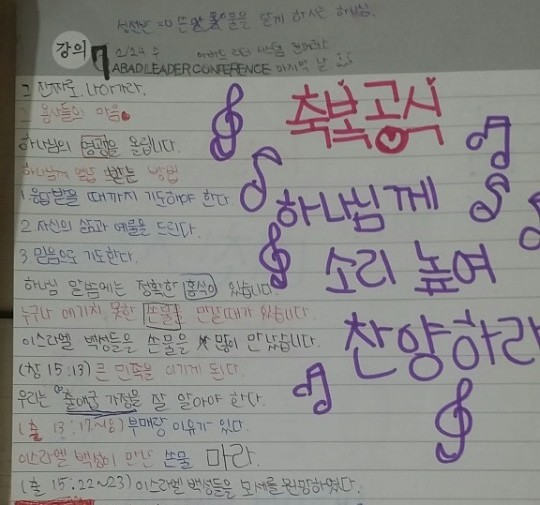 성전반 =0 쓴물을 달게 하시는 하나님.
강의 7
2/24 수
ABADILEADERCONFERENCE 마지막 날
그 진짜로 나아가라.
그 용사들의 마음
하나님의 영광을 올립니다.
하나님께 응답 받는 방법
1 응답받을 때까지 기도해야 한다
2 자신의 삶과 예물을 드린다.
3 믿음으로 기도한다.
하나님 말씀에는 정확한 공식이 있습니다.
누구나 얘기치 못한 쓴물을 만날때가 있습니다.
이스라엘 백성들은 쓴물을 많이 만났습니다.
(창 15:13) 큰 민족을 이기게 된다.
우리는 출애굽 과정을 잘 알아야 한다.
(출 13:17~18) 부매랑 이유가 있다.
이스라엘 백성이 만난 쓴물 마라.
(출 15:22~23) 이스라엘 백성들은 모세를 원망하였다.
축복공식
하나님께
소리 높여
찬양하라